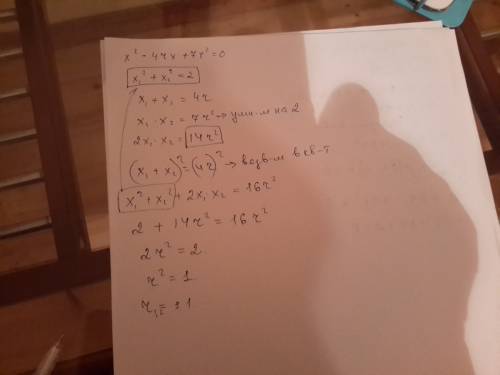 x² - 4rx + 7r² = 0
x₁² + x₁² = 2
x₁ + x₂ = 4r
x₁ · x₂ = 7r² → умн-м на 2
2x₁ · x₂ = 14r²
(x₁ + x₂)² = (4r)² → возв-м в кв-т
x₁² + x₂² + 2x₁x₂ = 16r²
2 + 14r² = 16r²
2r² = 2
r² = 1
r₁,₂ = ±1